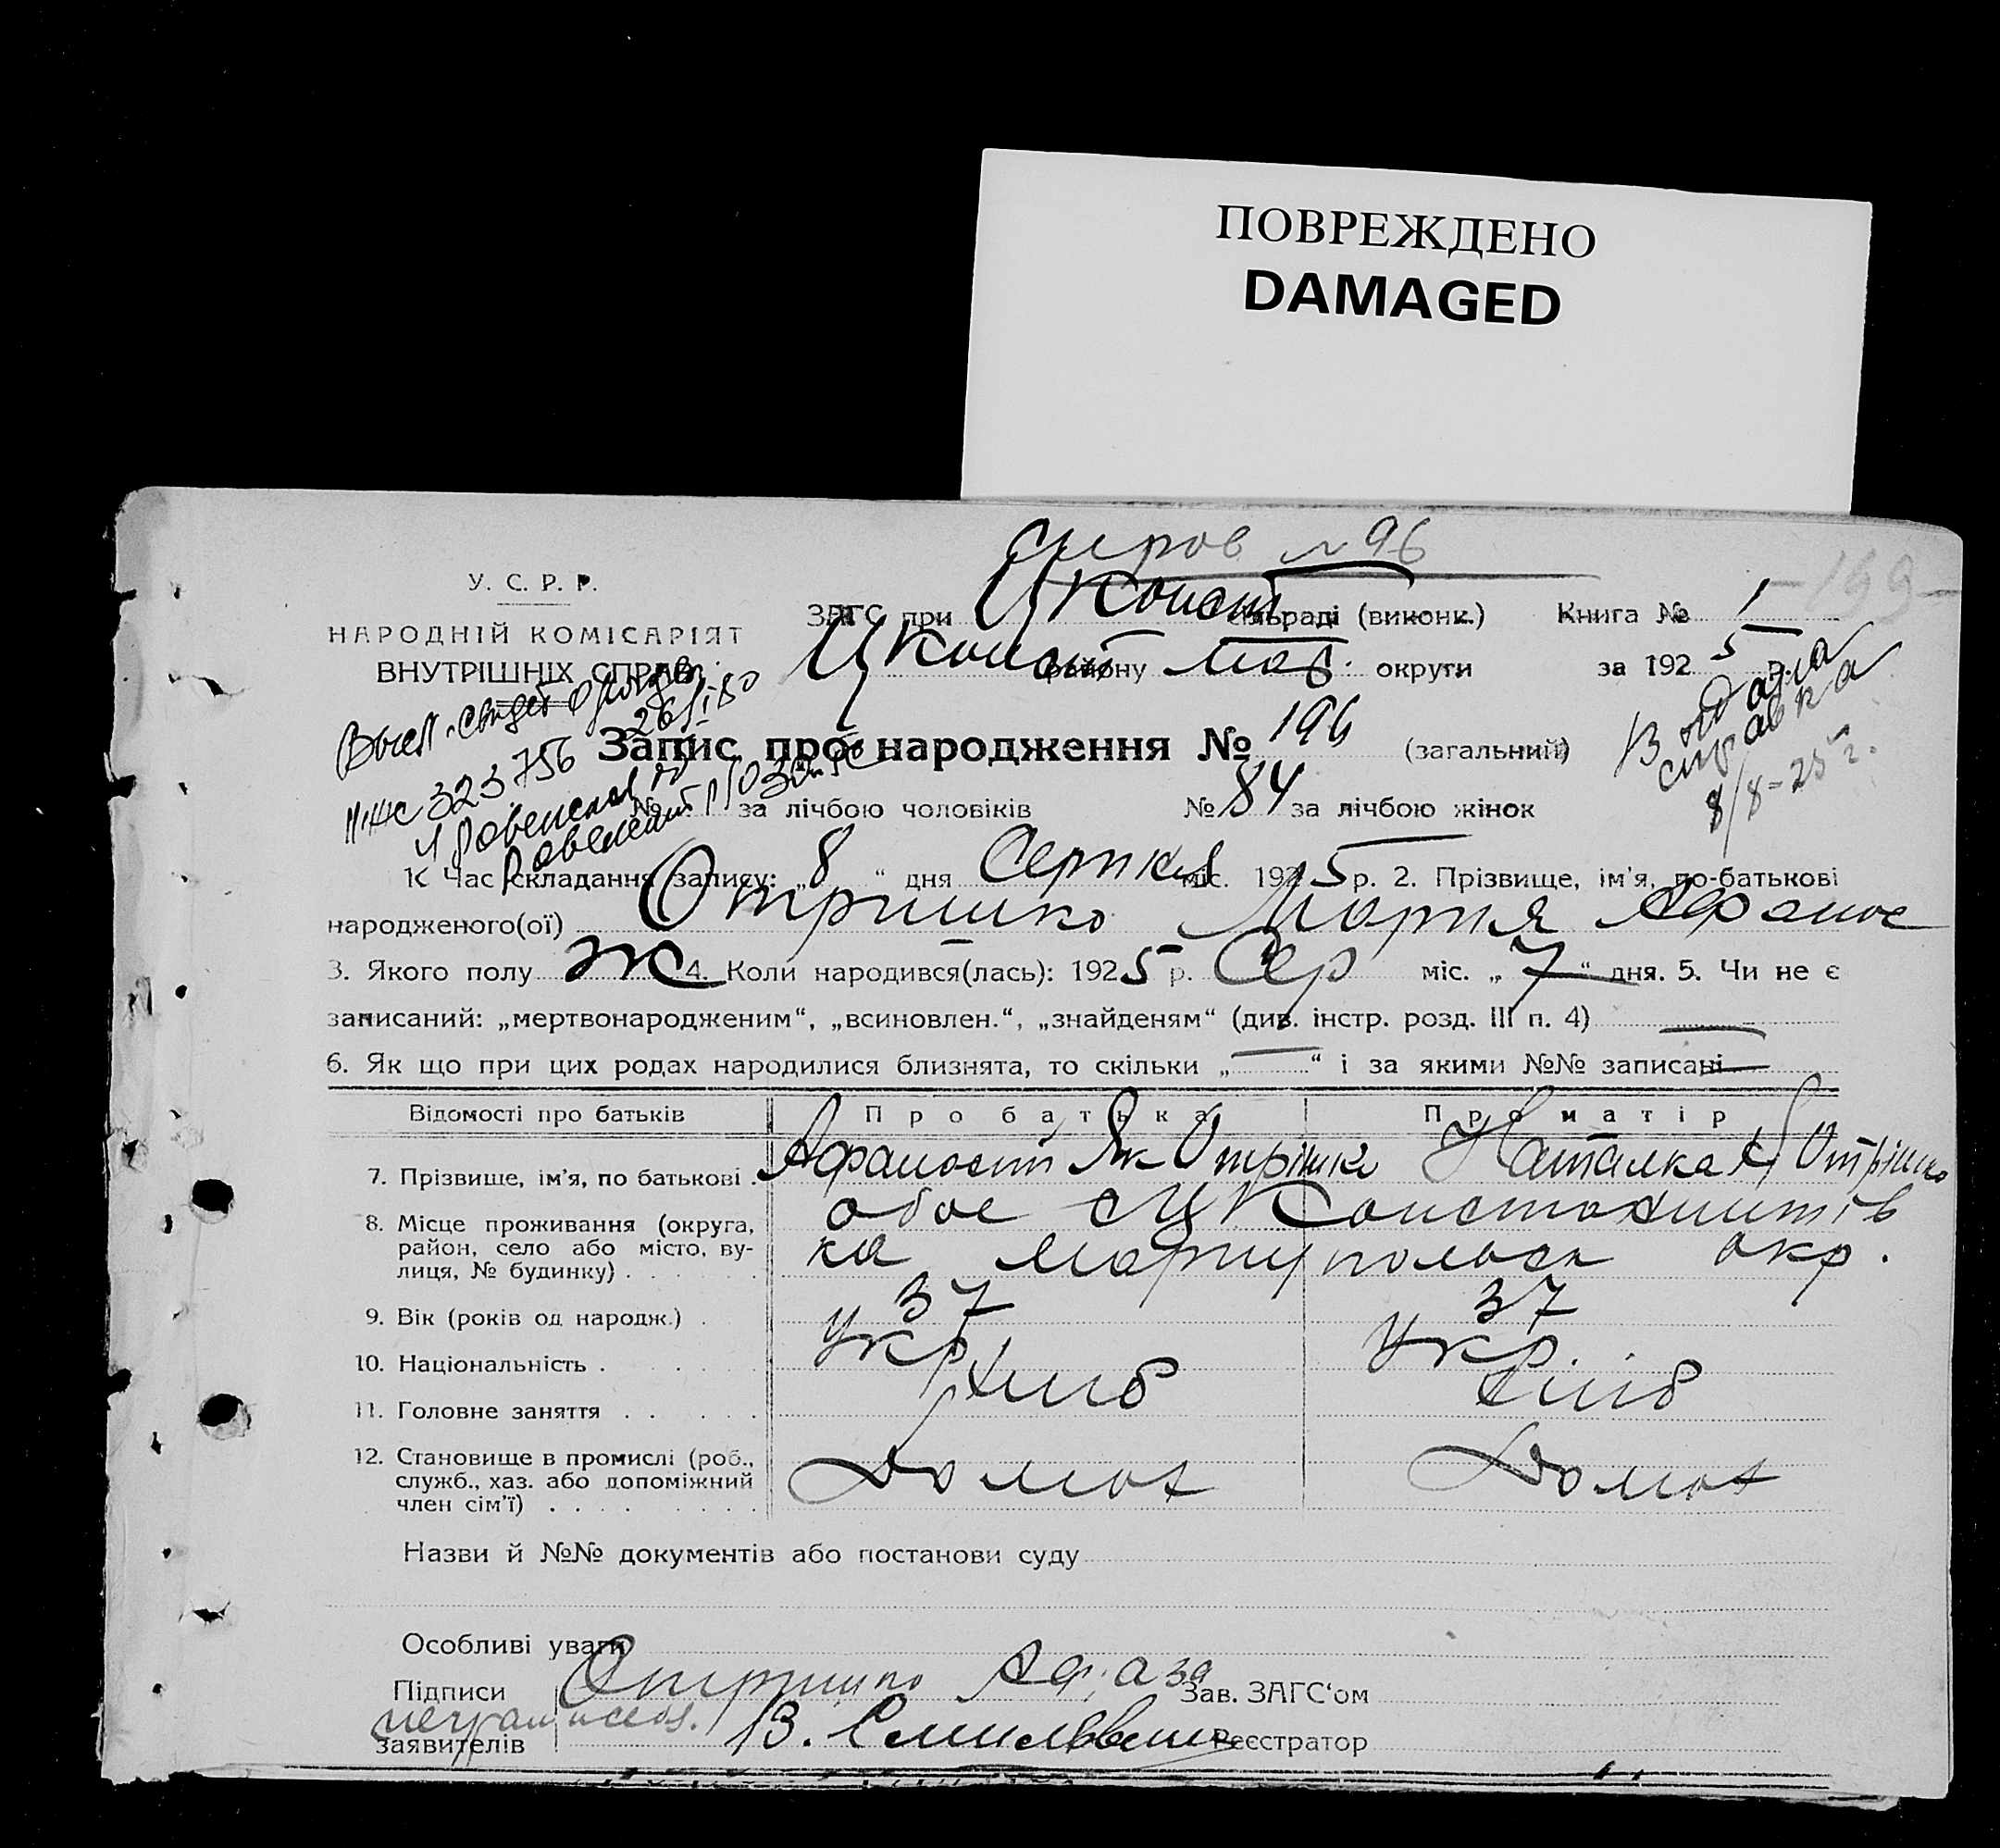 ПОВРЕЖДЕНО
DAMAGED
№ 96
199
У. С. Р. Р.
НАРОДНІЙ КОМІСАРІЯТ
ВНУТРІШНІХ СПРАВ.
ЗАГС при Ц Конст сільраді (виконк.) Книга № 1
Ц Конст району Мар. округи за 1925 р.
Запис про народження № 196 (загальний)
Выдана
справка
8/8-25 г.
№ за лічбою чоловіків № 84 за лічбою жінок
1. Час складання запису: „8“ дня Серпня міс. 1925 р. 2. Прізвище, ім'я, по-батькові
народженого(ої) Отришко Мария Афанас
3. Якого полу ж 4. Коли народився(лась): 1925 р. Сер міс. „7“ дня. 5. Чи не є
записаний: „мертвонародженим“, „всиновлен.“, „знайденям“ (див. інстр. розд. III п. 4) —
6. Як що при цих родах народилися близнята, то скільки „—“ і за якими №№ записані —
Відомості про батьків Про батька Про матір
7. Прізвище, ім'я, по батькові . Афанасий Як Отрішко Наталка Отрішко
8. Місце проживання (округа, район, село або місто, вулиця, № будинку) . обое с Ц Константинівка Мариупольск окр.
9. Вік (років од народж.) . 37 37
10. Національність . Укр. Укр.
11. Головне заняття . хліб хліб
12. Становище в промислі (роб., служб., хаз. або допоміжний член сім'ї) .
Назви й №№ документів або постанови суду
Особливі уваги
Підписи Отришко Аф. а за Зав. ЗАГС‘ом
заявителів Реєстратор